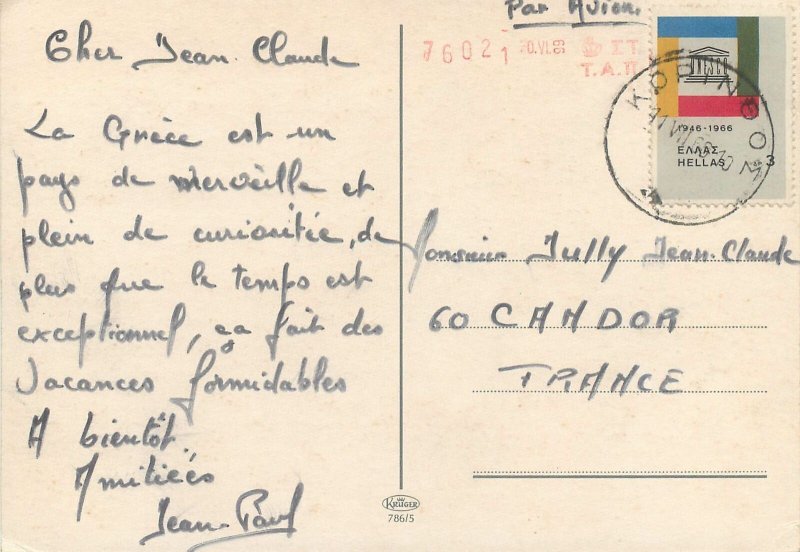 Par Avion.
76021 20.VI.69 ΣΤ
Τ.Α.Π
UNESCO
ΚΟΡΙΝΘΟΣ
1946-1966
ΕΛΛΑΣ
HELLAS 3
Cher Jean Claude
La Grèce est un
pays de merveille et
plein de curiositée, de
plus que le temps est
exceptionnel, ça fait des
Vacances formidables
A bientôt
Amitiées
Jean-Paul
Monsieur Jully Jean-Claude
60 CANDOR
FRANCE
KRÜGER
786/5